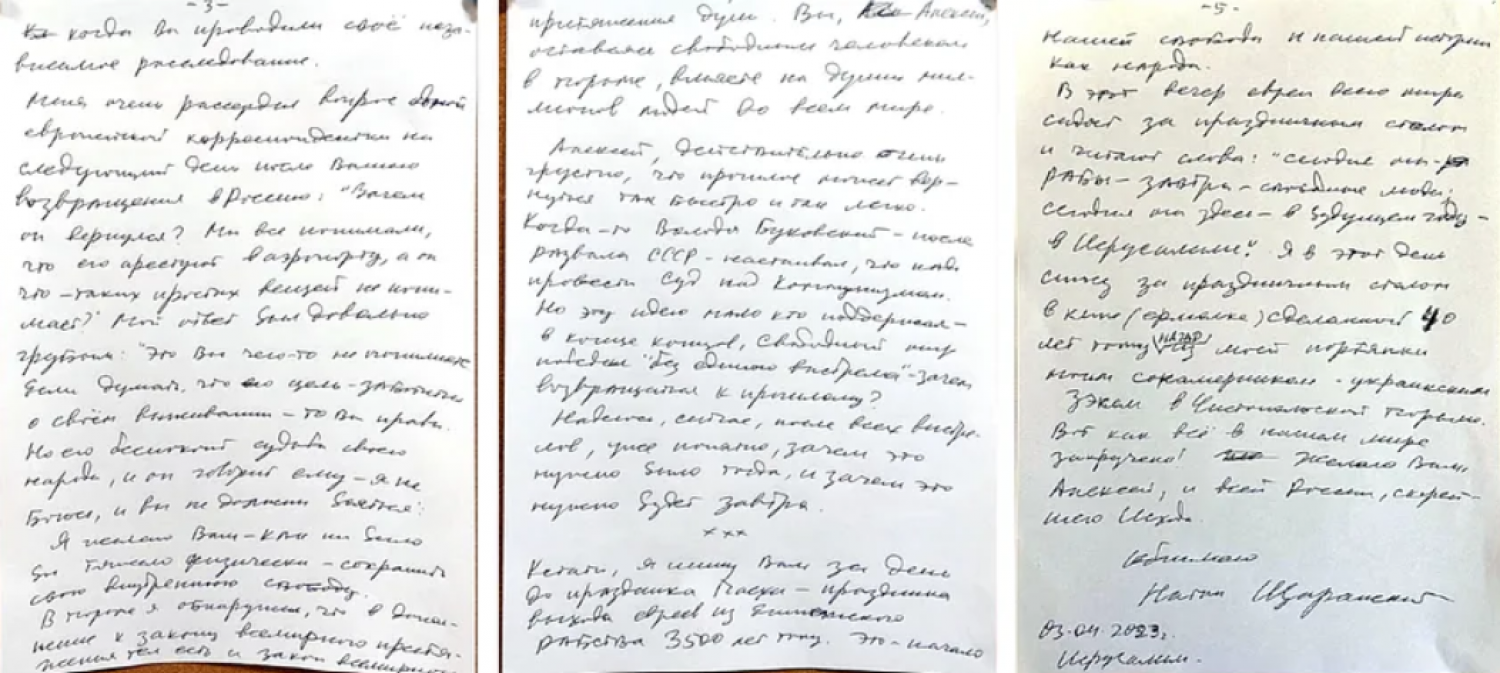 -3-
когда Вы проводили своё неза-
висимое расследование.
Меня очень рассердил вопрос одной
европейской корреспондентки на
следующий день после Вашего
возвращения в Россию: "Зачем
он вернулся? Мы все понимали,
что его арестуют в аэропорту, а он
что-таких простых вещей не пони-
мает?" Мой ответ был довольно
грубым: "Это Вы чего-то не понимаете.
Если думать, что его цель-заботиться
о своём выживании - то Вы правы.
Но его беспокоит судьба своего
народа, и он говорит ему - я не
боюсь, и вы не должны бояться".
Я желаю Вам-как ни было
бы тяжело физически-сохранить
свою внутреннюю свободу.
В тюрьме я обнаружил, что в допол-
нение к закону всемирного притя-
жения тел есть и закон всемирного
притяжения душ. Вы, Алексей,
оставаясь свободным человеком
в тюрьме, влияете на души мил-
лионов людей во всем мире.
Алексей, действительно очень
грустно, что прошлое может вер-
нуться так быстро и так легко.
Когда-то Володя Буковский - после
развала СССР - настаивал, что надо
провести Суд над Коммунизмом.
Но эту идею мало кто поддержал-
в конце концов, свободный мир
победил "без единого выстрела"-зачем
возвращаться к прошлому?
Надеюсь, сейчас, после всех выстре-
лов, уже понятно, зачем это
нужно было тогда, и зачем это
нужно будет завтра.
×××
Кстати, я пишу Вам за день
до праздника Пасхи - праздника
выхода евреев из Египетского
рабства 3500 лет тому. Это-начало
-5-
нашей свободы и нашей истории
как народа.
В этот вечер евреи всего мира
сидят за праздничным столом
и читают слова: "сегодня мы-
рабы - завтра - свободные люди;
сегодня мы здесь - в будущем году-
в Иерусалиме". Я в этот день
сижу за праздничным столом
в кипе (ермолке) сделанной 40
лет тому назад из моей портянки
моим сокамерником - украинским
зэком в Чистопольской тюрьме.
Вот как всё в нашем мире
закручено! Желаю Вам,
Алексей, и всей России, скорей-
шего Исхода.
Обнимаю
Натан Щаранский
03.04.2023г.
Иерусалим.